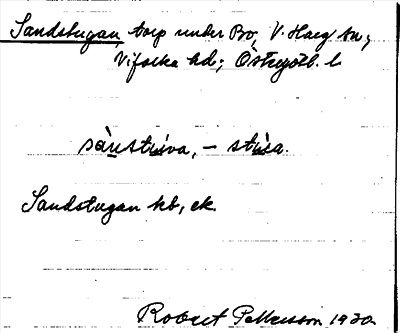 Sandstugan, torp under Bo, V. Harg sn,
Vifolka hd; Östergötl. l.
sànstùva, – stùa.
Sandstugan kb, ek.
Robert Pettersson 1930